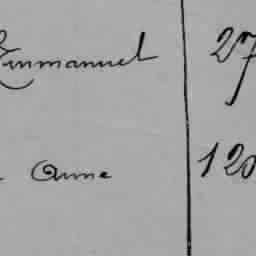 Emmanuel 27
Anne 120